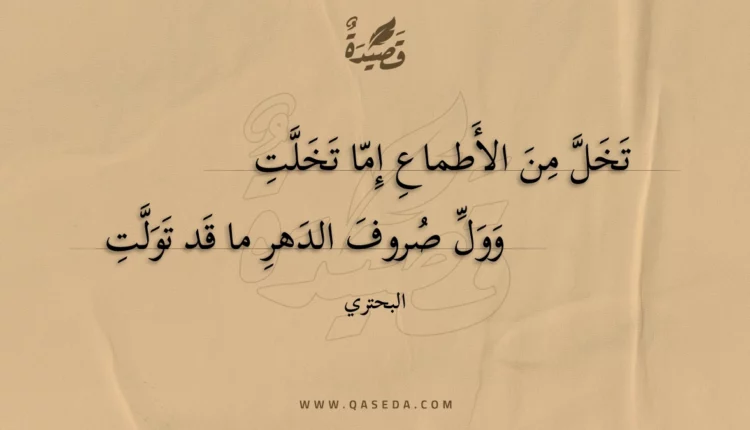 قَصِيدَةٌ
تَخَلَّ مِنَ الأَطماعِ إِمّا تَخَلَّتِ
وَوَلِّ صُروفَ الدَهرِ ما قَد تَوَلَّتِ
البحتري
WWW.QASEDA.COM